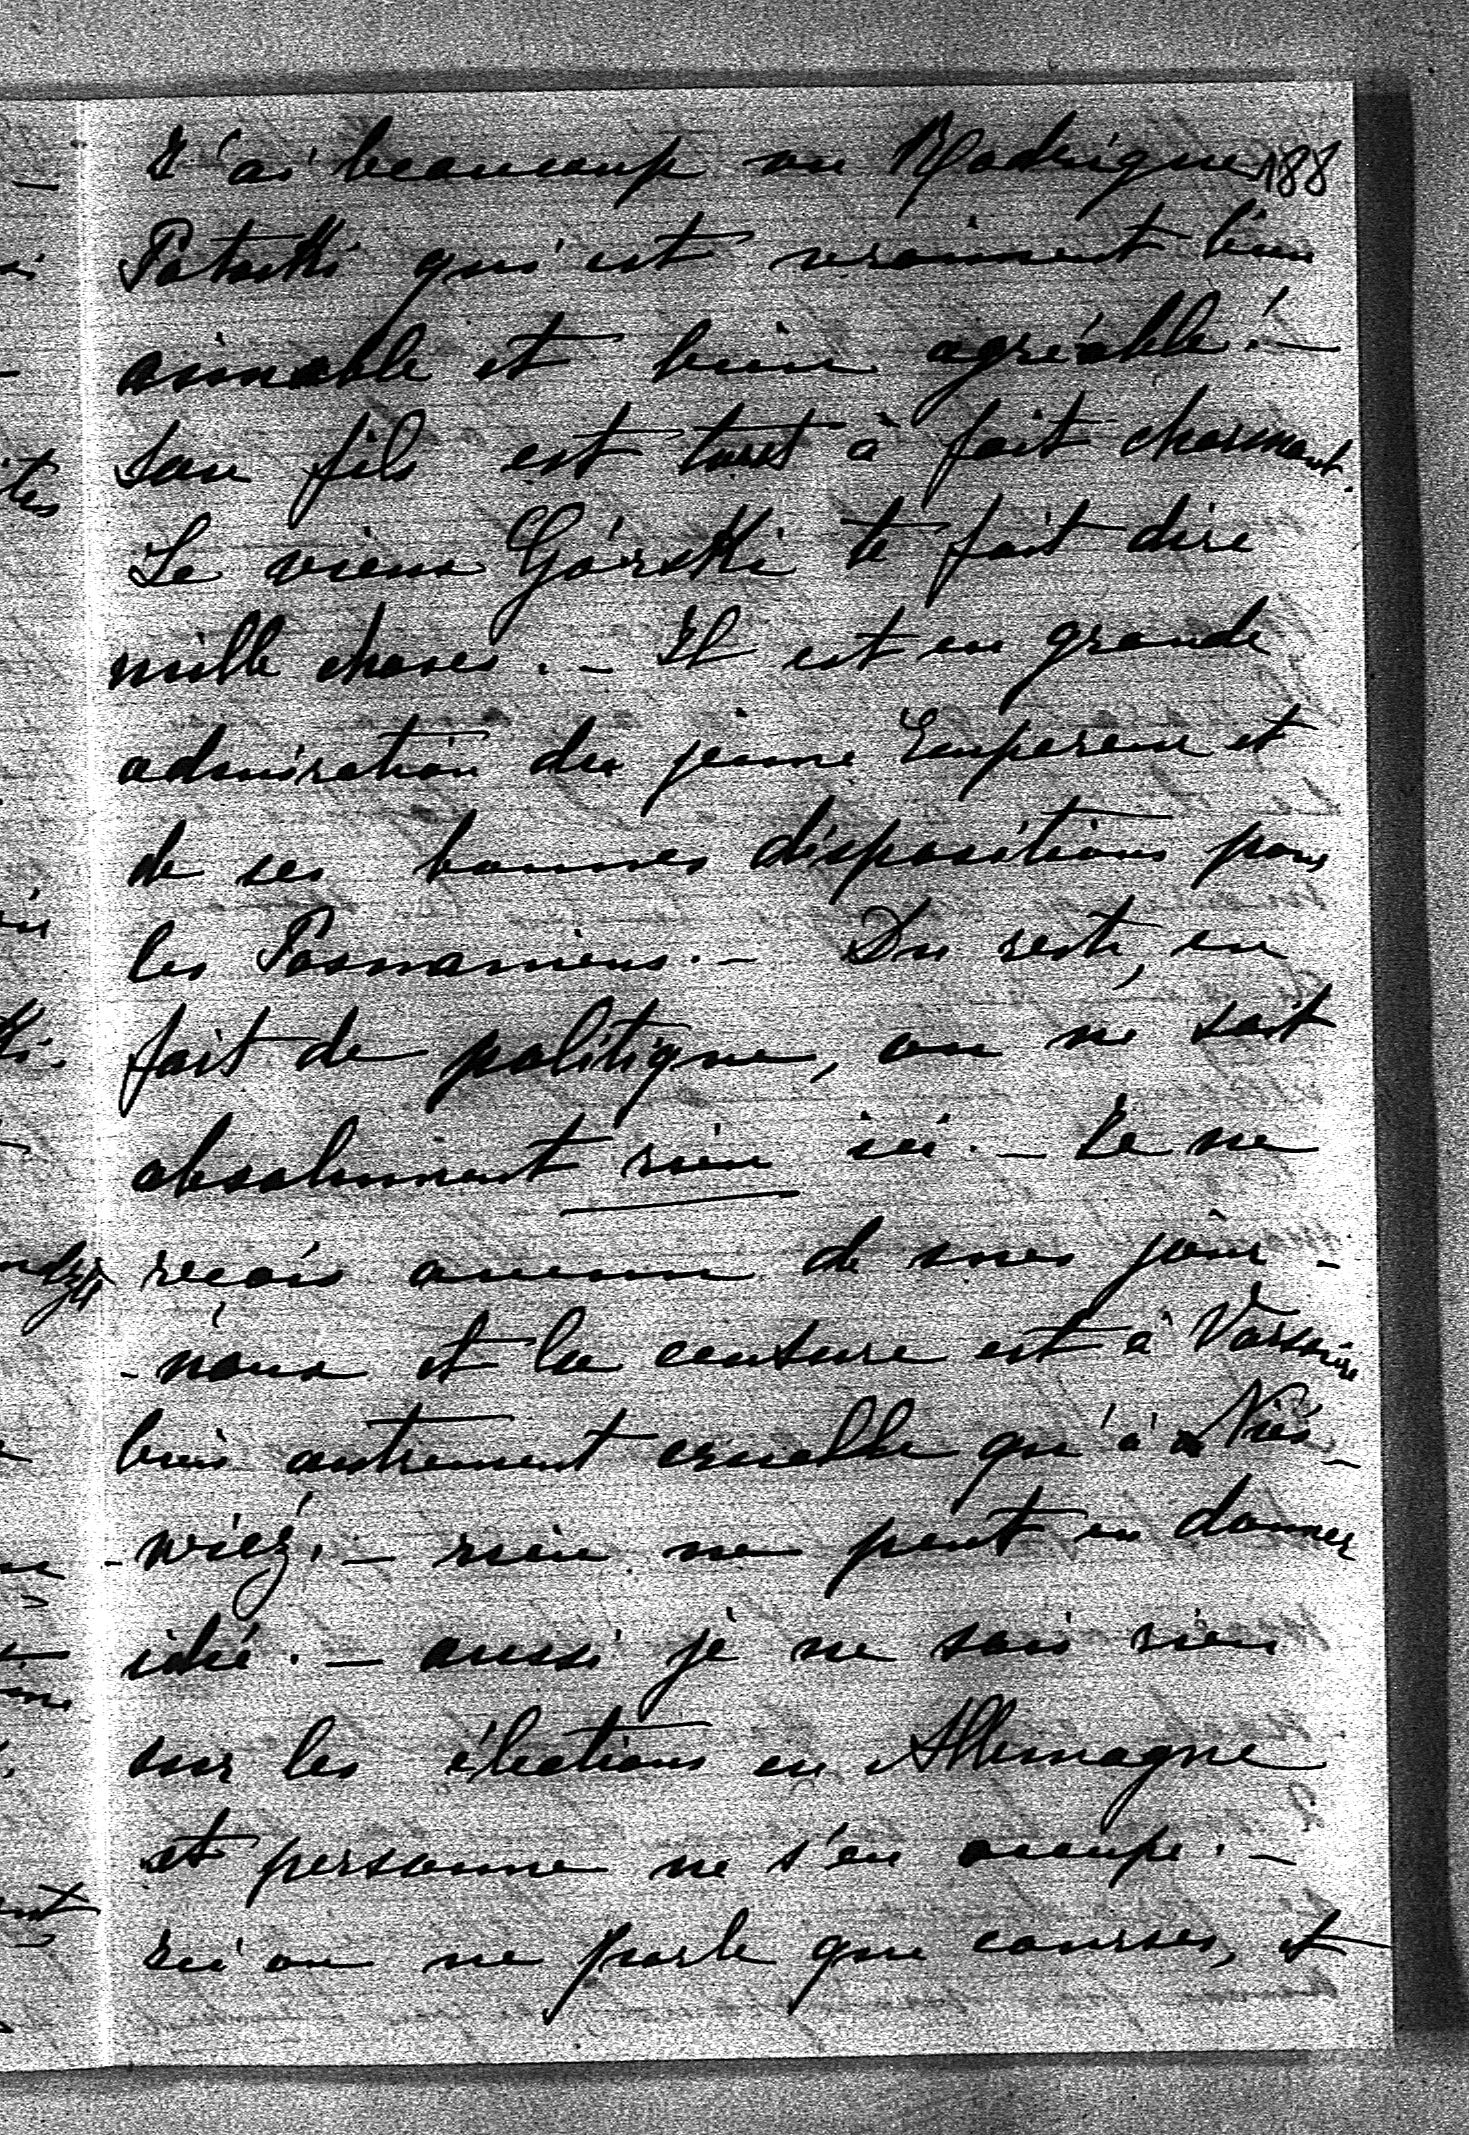 188
J'ai beaucoup vu Rodrigue
Potocki qui est vraiment bien
aimable et bien agréable. –
Son fils est tout à fait charmant.
Le vieux Górski te fait dire
mille choses. – Il est en grande
admiration du jeune Empereur et
de ses bonnes dispositions pour
les Posnaniens. – Du reste, en
fait de politique, on ne sait
absolument rien ici. – Je ne
reçois aucun de mes jour-
-naux et la censure est à Varsovie
bien autrement cruelle qu'à Nies-
-wież. – rien ne peut en donner
idée. – aussi je ne sais rien
sur les élections en Allemagne
et personne ne s'en occupe. –
Ici on ne parle que courses, et